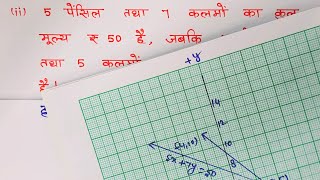 (ii) 5 पेंसिल तथा 7 कलमों का कुल
मूल्य ₹ 50 है, जबकि
तथा 5 कलमों
+y
14
12
10
8
5x+7y=50